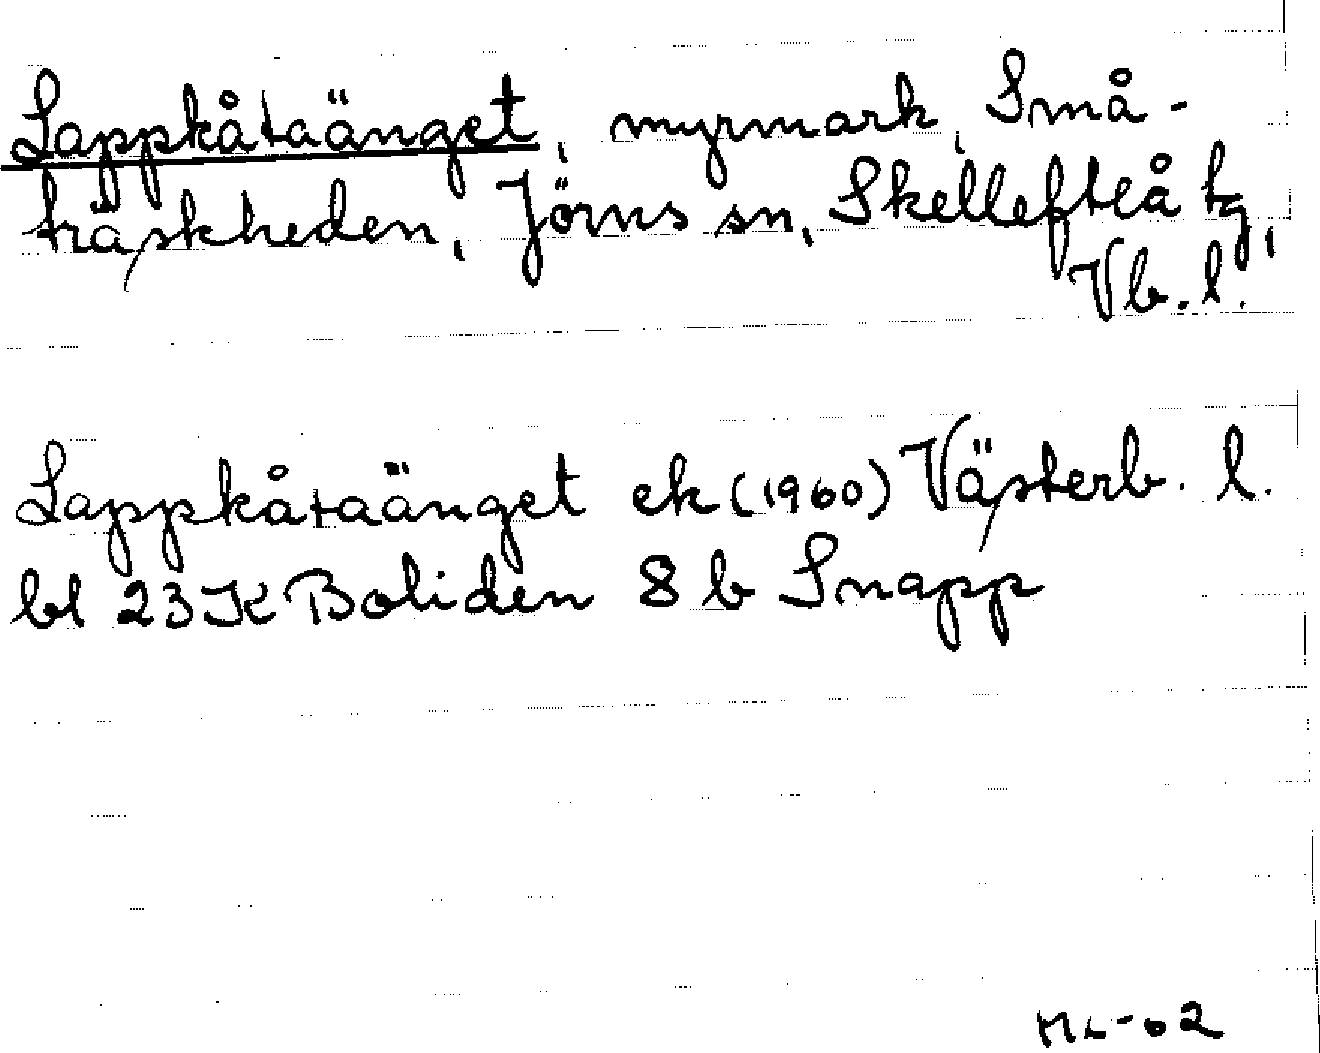 Lappkåtaänget, myrmark, Små-
träskheden, Jörns sn, Skellefteå tg,
Vb. l.
Lappkåtaänget ek (1960) Västerb. l.
bl 23 K Boliden 8 b Snapp
ML-62